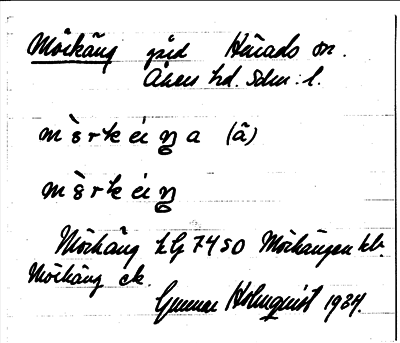 Mörkäng gård Hinads sn.
Åsens hd. Sdm. l.
m ö r k e i ŋ a (ä)
m ö r k e i ŋ
Mörkäng EG 7450 Mörkängen kb.
Mörkäng ek.
Gunnar Holmquist 1934.